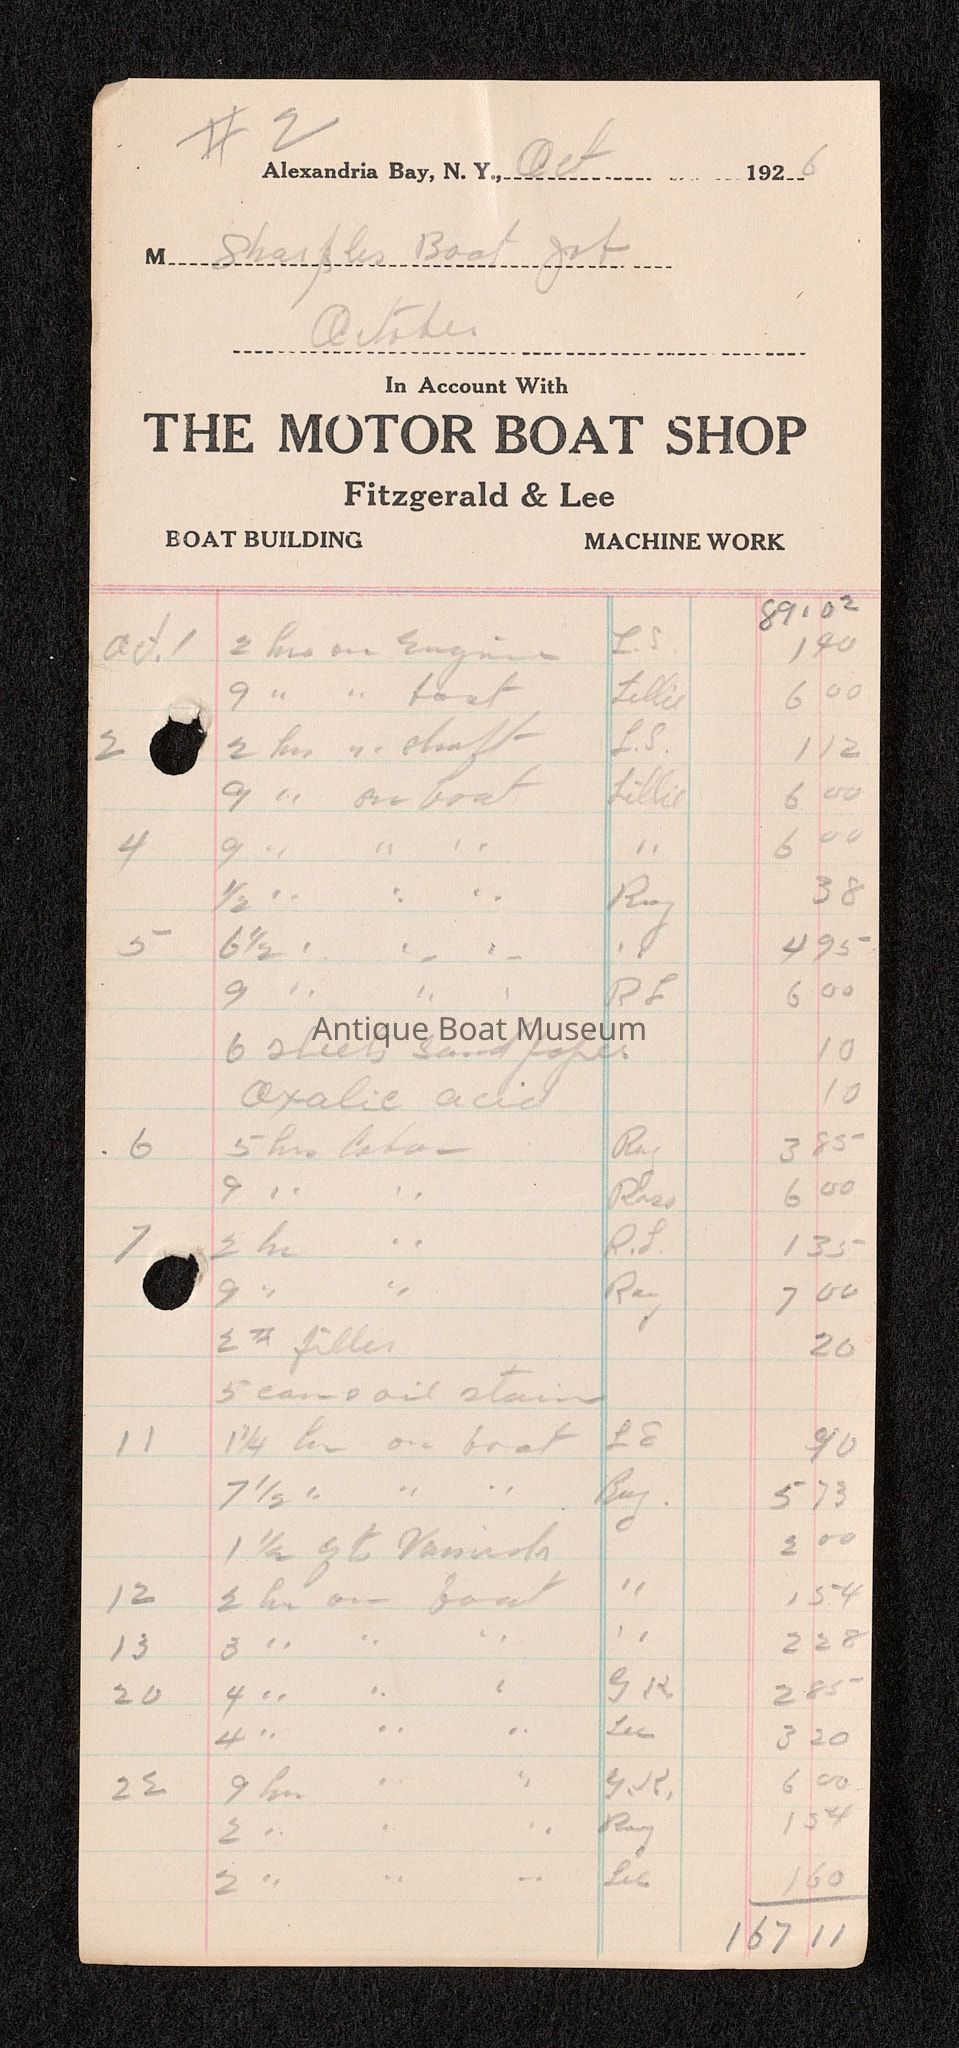 # 2
Alexandria Bay, N. Y., Oct 1926
M Sharples Boat Job
October
In Account With
THE MOTOR BOAT SHOP
Fitzgerald & Lee
BOAT BUILDING MACHINE WORK
89.02
Oct. 1 2 hrs on Engine L.S. 1 40
9 " " boat Lillie 6 00
2 2 hrs " shaft L.S. 1 12
9 " on boat Lillie 6 00
4 9 " " " " 6 00
1/2 " " " Ray 38
5 6 1/2 " " " " 4 95
9 " " " R L 6 00
Antique Boat Museum
6 sheets sand paper 10
Oxalic acid 10
6 5 hrs labor Ray 3 85
9 " " Ross 6 00
7 2 hr " R.L. 1 35
9 " " Ray 7 00
2 # filler 20
5 cans oil stain
11 1 1/4 hr on boat L S 90
7 1/2 " " " Ray. 5 73
1 1/2 qt Varnish 2 00
12 2 hr on boat " 1 54
13 3 " " " " 2 28
20 4 " " " G K 2 85
4 " " " Lee 3 20
22 9 hrs " " G.K. 6 00
2 " " " Ray 1 54
2 " " " Lee 1 60
167 11